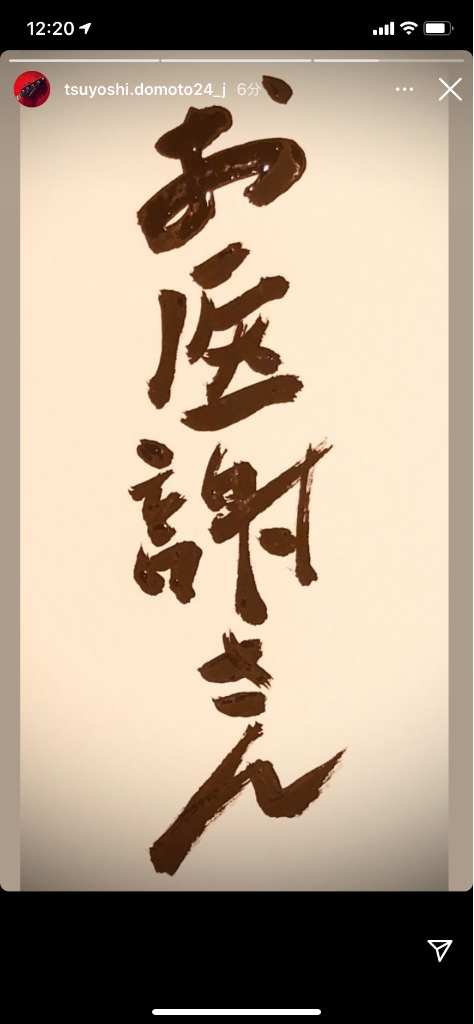 12:20
tsuyoshi.domoto24_j 6分
お医謝さん